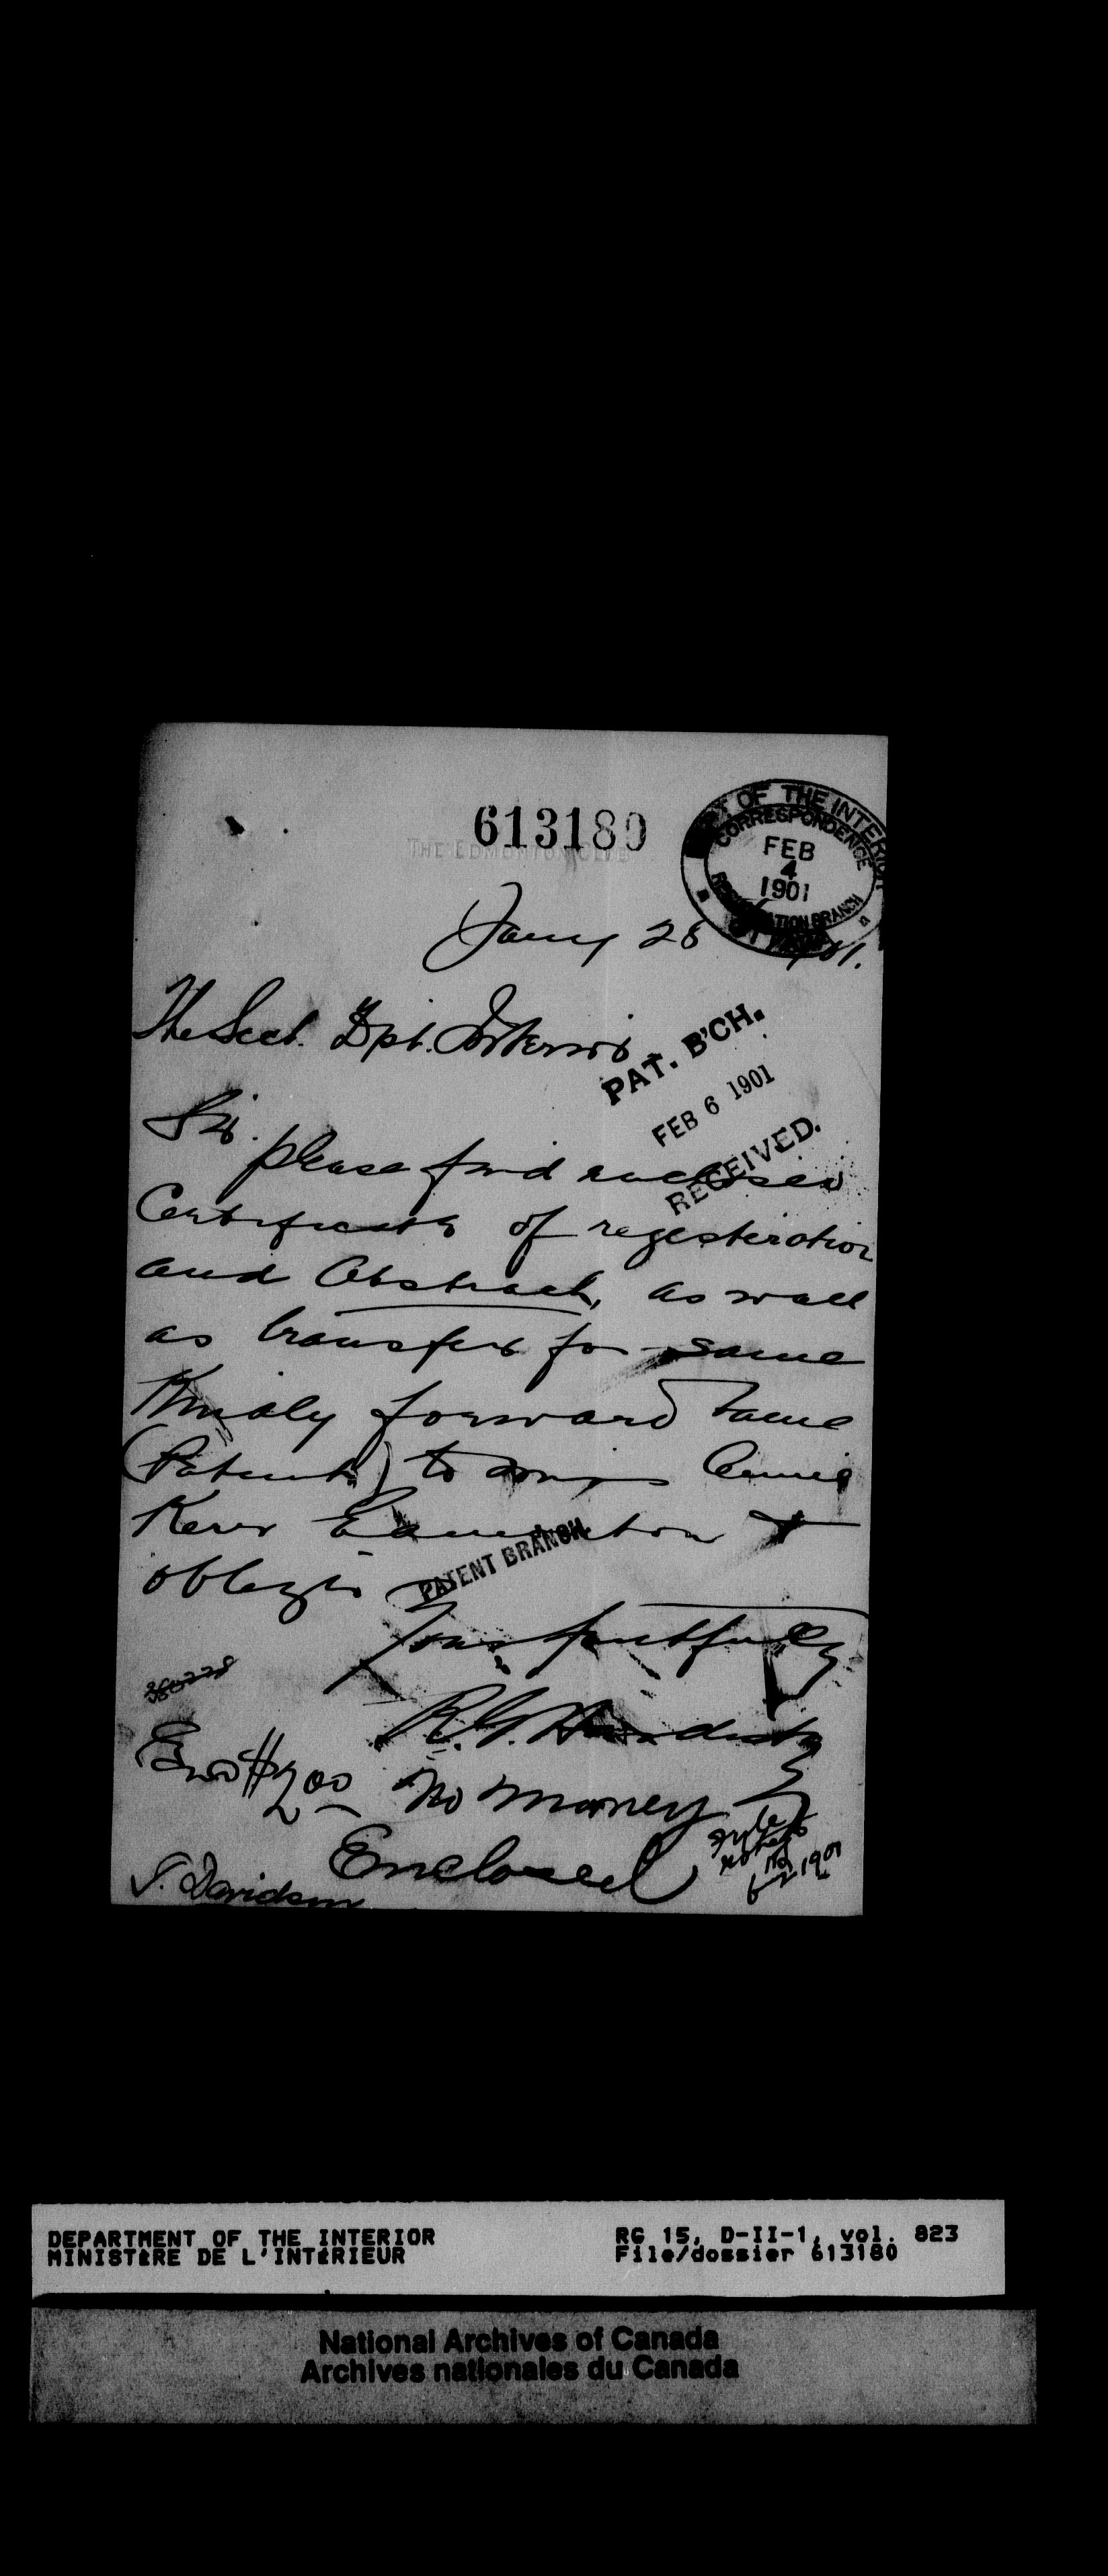 613180
THE EDMONTON CLUB
DEPT OF THE INTERIOR
CORRESPONDENCE
FEB
4
1901
REGISTRATION BRANCH
OTTAWA
Jany 28 1901.
The Sect. Dpt. Interior
PAT. B'CH.
FEB 6 1901
RECEIVED.
Sir.
please find enclosed
Certificate of regesteration
and Abstract, as well
as transfer for same
Kindly forward same
(Patent) to Annie
Kerr Edmonton &
oblige
PATENT BRANCH
Yours faithfully
R.G. Hardisty
Enco $2.00 No money
Enclosed
J. Davidson
DEPARTMENT OF THE INTERIOR
MINISTÈRE DE L'INTÉRIEUR
RG 15, D-II-1, vol. 823
File/dossier 613180
National Archives of Canada
Archives nationales du Canada